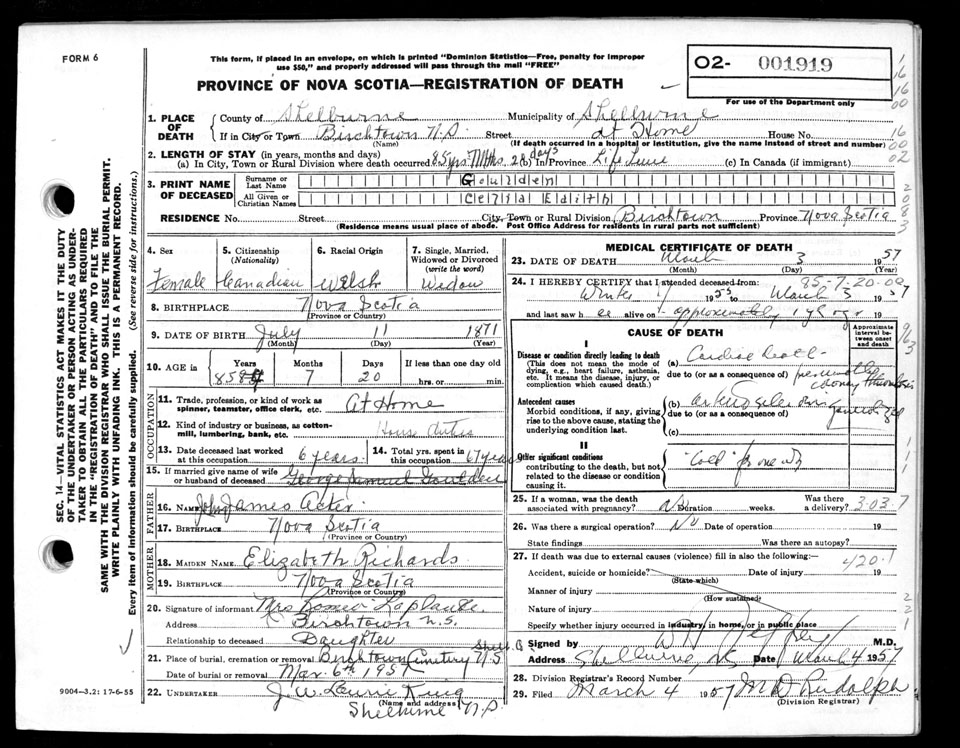 FORM 6
This form, if placed in an envelope, on which is printed "Dominion Statistics—Free, penalty for improper
use $50," and properly addressed will pass through the mail "FREE"
PROVINCE OF NOVA SCOTIA—REGISTRATION OF DEATH
O2- 001919
For use of the Department only
SEC. 14—VITAL STATISTICS ACT MAKES IT THE DUTY
OF THE UNDERTAKER OR PERSON ACTING AS UNDER-
TAKER TO OBTAIN ALL THE PARTICULARS REQUIRED
IN THE "REGISTRATION OF DEATH" AND TO FILE THE
SAME WITH THE DIVISION REGISTRAR WHO SHALL ISSUE THE BURIAL PERMIT.
WRITE PLAINLY WITH UNFADING INK. THIS IS A PERMANENT RECORD.
Every item of information should be carefully supplied. (See reverse side for instructions.)
1. PLACE OF DEATH County of Shelburne Municipality of Shelburne
If in City or Town Birchtown N.S. Street at Home House No.
(Name) (If death occurred in a hospital or institution, give the name instead of street and number)
2. LENGTH OF STAY (in years, months and days)
(a) In City, Town or Rural Division where death occurred 85 yrs 7 Mths. 20 days (b) in Province Life Time (c) In Canada (if immigrant)
3. PRINT NAME OF DECEASED Surname or Last Name Goulden
All Given or Christian Names Celia Edith
RESIDENCE No. Street City, Town or Rural Division Birchtown Province Nova Scotia
(Residence means usual place of abode. Post Office Address for residents in rural parts not sufficient)
4. Sex 5. Citizenship (Nationality) 6. Racial Origin 7. Single, Married, Widowed or Divorced (write the word)
Female Canadian Welsh Widow
8. BIRTHPLACE Nova Scotia
(Province or Country)
9. DATE OF BIRTH July 11 1871
(Month) (Day) (Year)
10. AGE in Years Months Days If less than one day old
85 7 20 hrs. or min.
OCCUPATION
11. Trade, profession, or kind of work as spinner, teamster, office clerk, etc. At Home
12. Kind of industry or business, as cotton-mill, lumbering, bank, etc. House duties
13. Date deceased last worked at this occupation 6 years 14. Total yrs. spent in this occupation 67 years
15. If married give name of wife or husband of deceased George Samuel Goulden
FATHER
16. NAME John James Acker
17. BIRTHPLACE Nova Scotia
(Province or Country)
MOTHER
18. MAIDEN NAME Elizabeth Richards
19. BIRTHPLACE Nova Scotia
(Province or Country)
20. Signature of informant Mrs Romeo Laplante
Address Birchtown N.S.
Relationship to deceased Daughter
21. Place of burial, cremation or removal Birchtown Cemetery Shelb. Co N.S.
Date of burial or removal Mar. 6th 1957
22. UNDERTAKER J. W. Laurie King
(Name and address)
Shelburne N.S.
9004-3.2: 17-6-55
MEDICAL CERTIFICATE OF DEATH
23. DATE OF DEATH March 3 1957
(Month) (Day) (Year)
85-7-20-00
24. I HEREBY CERTIFY that I attended deceased from:
Winter 1955 to March 3 1957
and last saw her alive on approximately 1 yr ago 19
CAUSE OF DEATH
Approximate interval between onset and death
I
Disease or condition directly leading to death
(This does not mean the mode of dying, e.g., heart failure, asthenia, etc. It means the disease, injury, or complication which caused death.)
(a) Cardiac death
due to (or as a consequence of) presumably coronary thrombosis
Antecedent causes
Morbid conditions, if any, giving rise to the above cause, stating the underlying condition last.
(b) arteriosclerosis generalized
due to (or as a consequence of)
(c)
II
Other significant conditions
contributing to the death, but not related to the disease or condition causing it.
"Cold" for one wk
25. If a woman, was the death associated with pregnancy? No Duration weeks. Was there a delivery? 3037
26. Was there a surgical operation? No Date of operation 19
State findings Was there an autopsy?
27. If death was due to external causes (violence) fill in also the following:
420.1
Accident, suicide or homicide? Date of injury 19
(State which)
Manner of injury
(How sustained)
Nature of injury
Specify whether injury occurred in industry, in home, or in public place
Signed by M.D.
Address Shelburne, NS Date March 4 1957
28. Division Registrar's Record Number
29. Filed March 4 1957 M D Rudolph
(Division Registrar)